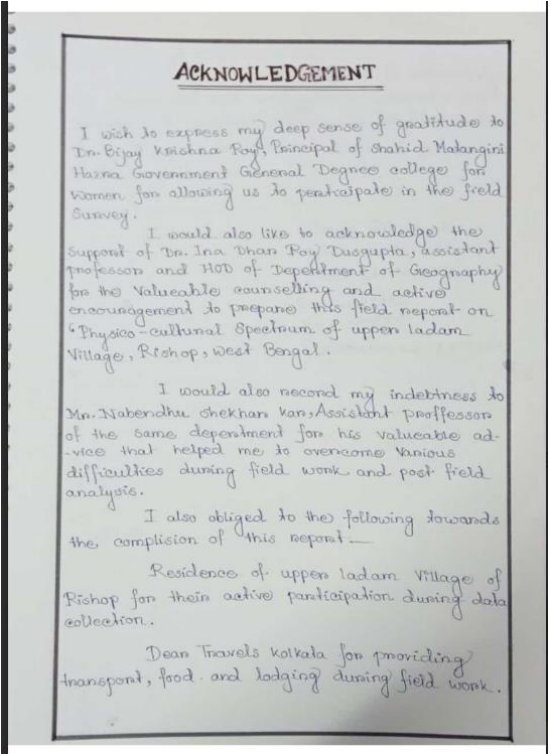 ACKNOWLEDGEMENT
I wish to express my deep sense of gratitude to
Dr. Bijay Krishna Roy, Principal of Shahid Matangini
Hazra Government General Degree college for
Women for allowing us to perticipate in the field
Survey.
I would also like to acknowledge the
Support of Dr. Ina Dhar Roy Dusgupta, assistant
professor and HOD of Depertment of Geography
for the Valueable counselling and active
encouragement to prepare this field report on
"Physico-cultural Spectrum of upper ladam
Village, Rishop, West Bengal.
I would also record my indebtness to
Mr. Nabendhu Shekhar Kar, Assistant proffessor
of the same depertment for his valueable ad-
-vice that helped me to overcome Various
difficulties during field work and post field
analysis.
I also obliged to the following towards
the complision of this report—
Residence of upper ladam Village of
Rishop for their active participation during data
collection.
Dear Travels Kolkata for providing
transport, food and lodging during field work.